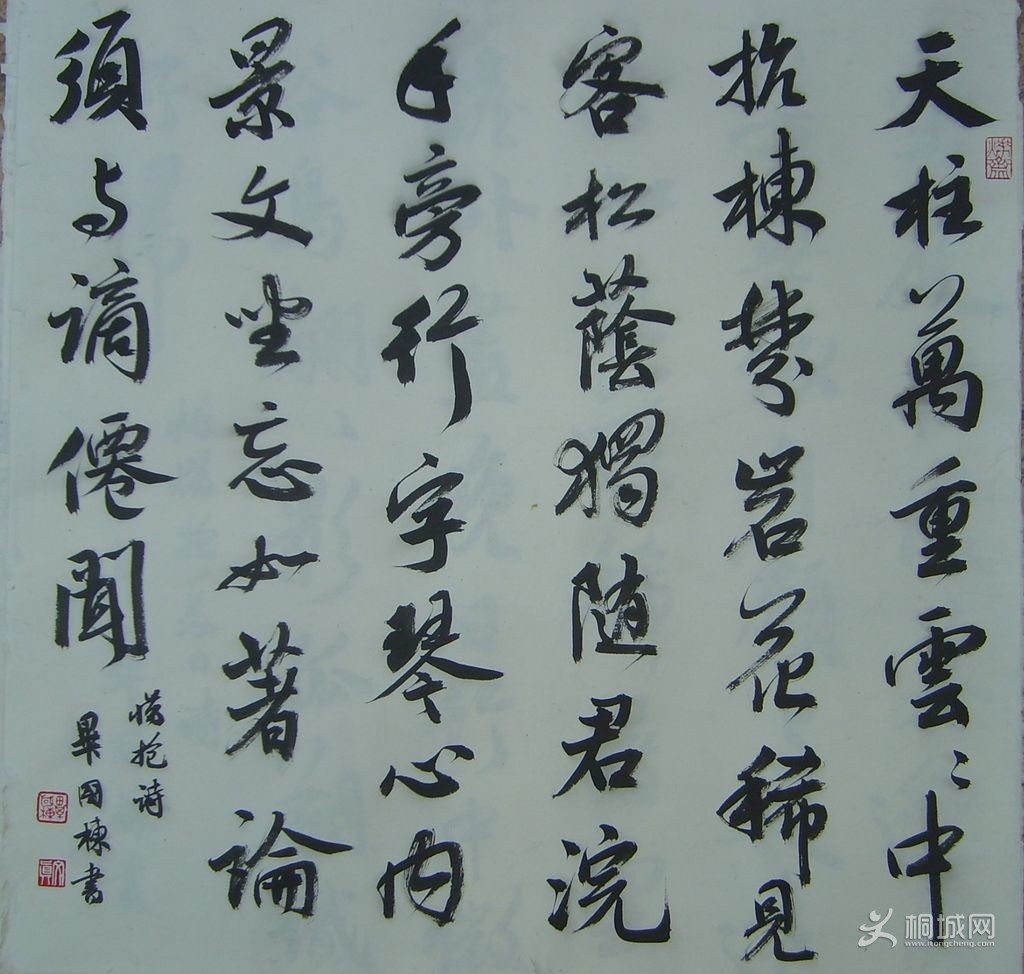 天柱萬重雲〻中
抗棟棼岩花稀見
客松蔭獨隨君浣
手旁行字琴心内
景文坐忘如著論
須与謫僊聞
惜抱诗
畢国棟書
桐城网
www.itongcheng.com